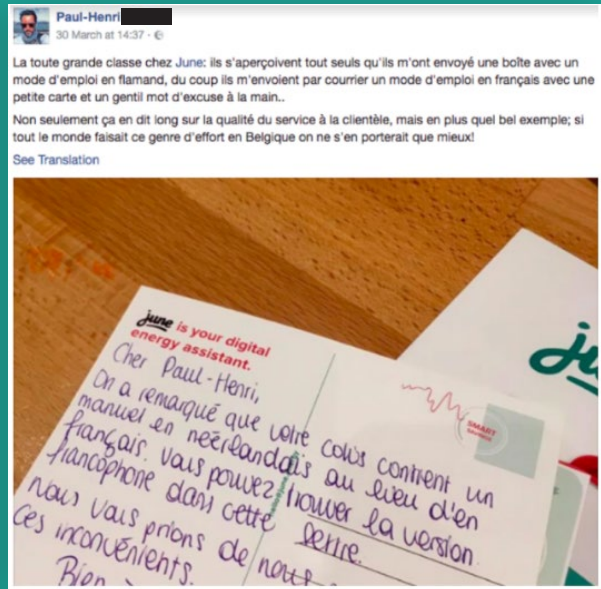 Paul-Henri
30 March at 14:37 ·
La toute grande classe chez June: ils s'aperçoivent tout seuls qu'ils m'ont envoyé une boîte avec un
mode d'emploi en flamand, du coup ils m'envoient par courrier un mode d'emploi en français avec une
petite carte et un gentil mot d'excuse à la main..
Non seulement ça en dit long sur la qualité du service à la clientèle, mais en plus quel bel exemple; si
tout le monde faisait ce genre d'effort en Belgique on ne s'en porterait que mieux!
See Translation
june is your digital
energy assistant.
Cher Paul-Henri,
On a remarqué que votre colis contient un
manuel en neérlandais au lieu d'en
français. Vous pouvez trouver la version
francophone dans cette lettre.
Nous vous prions de nous
ces inconvénients.
Bien
SMART
ju